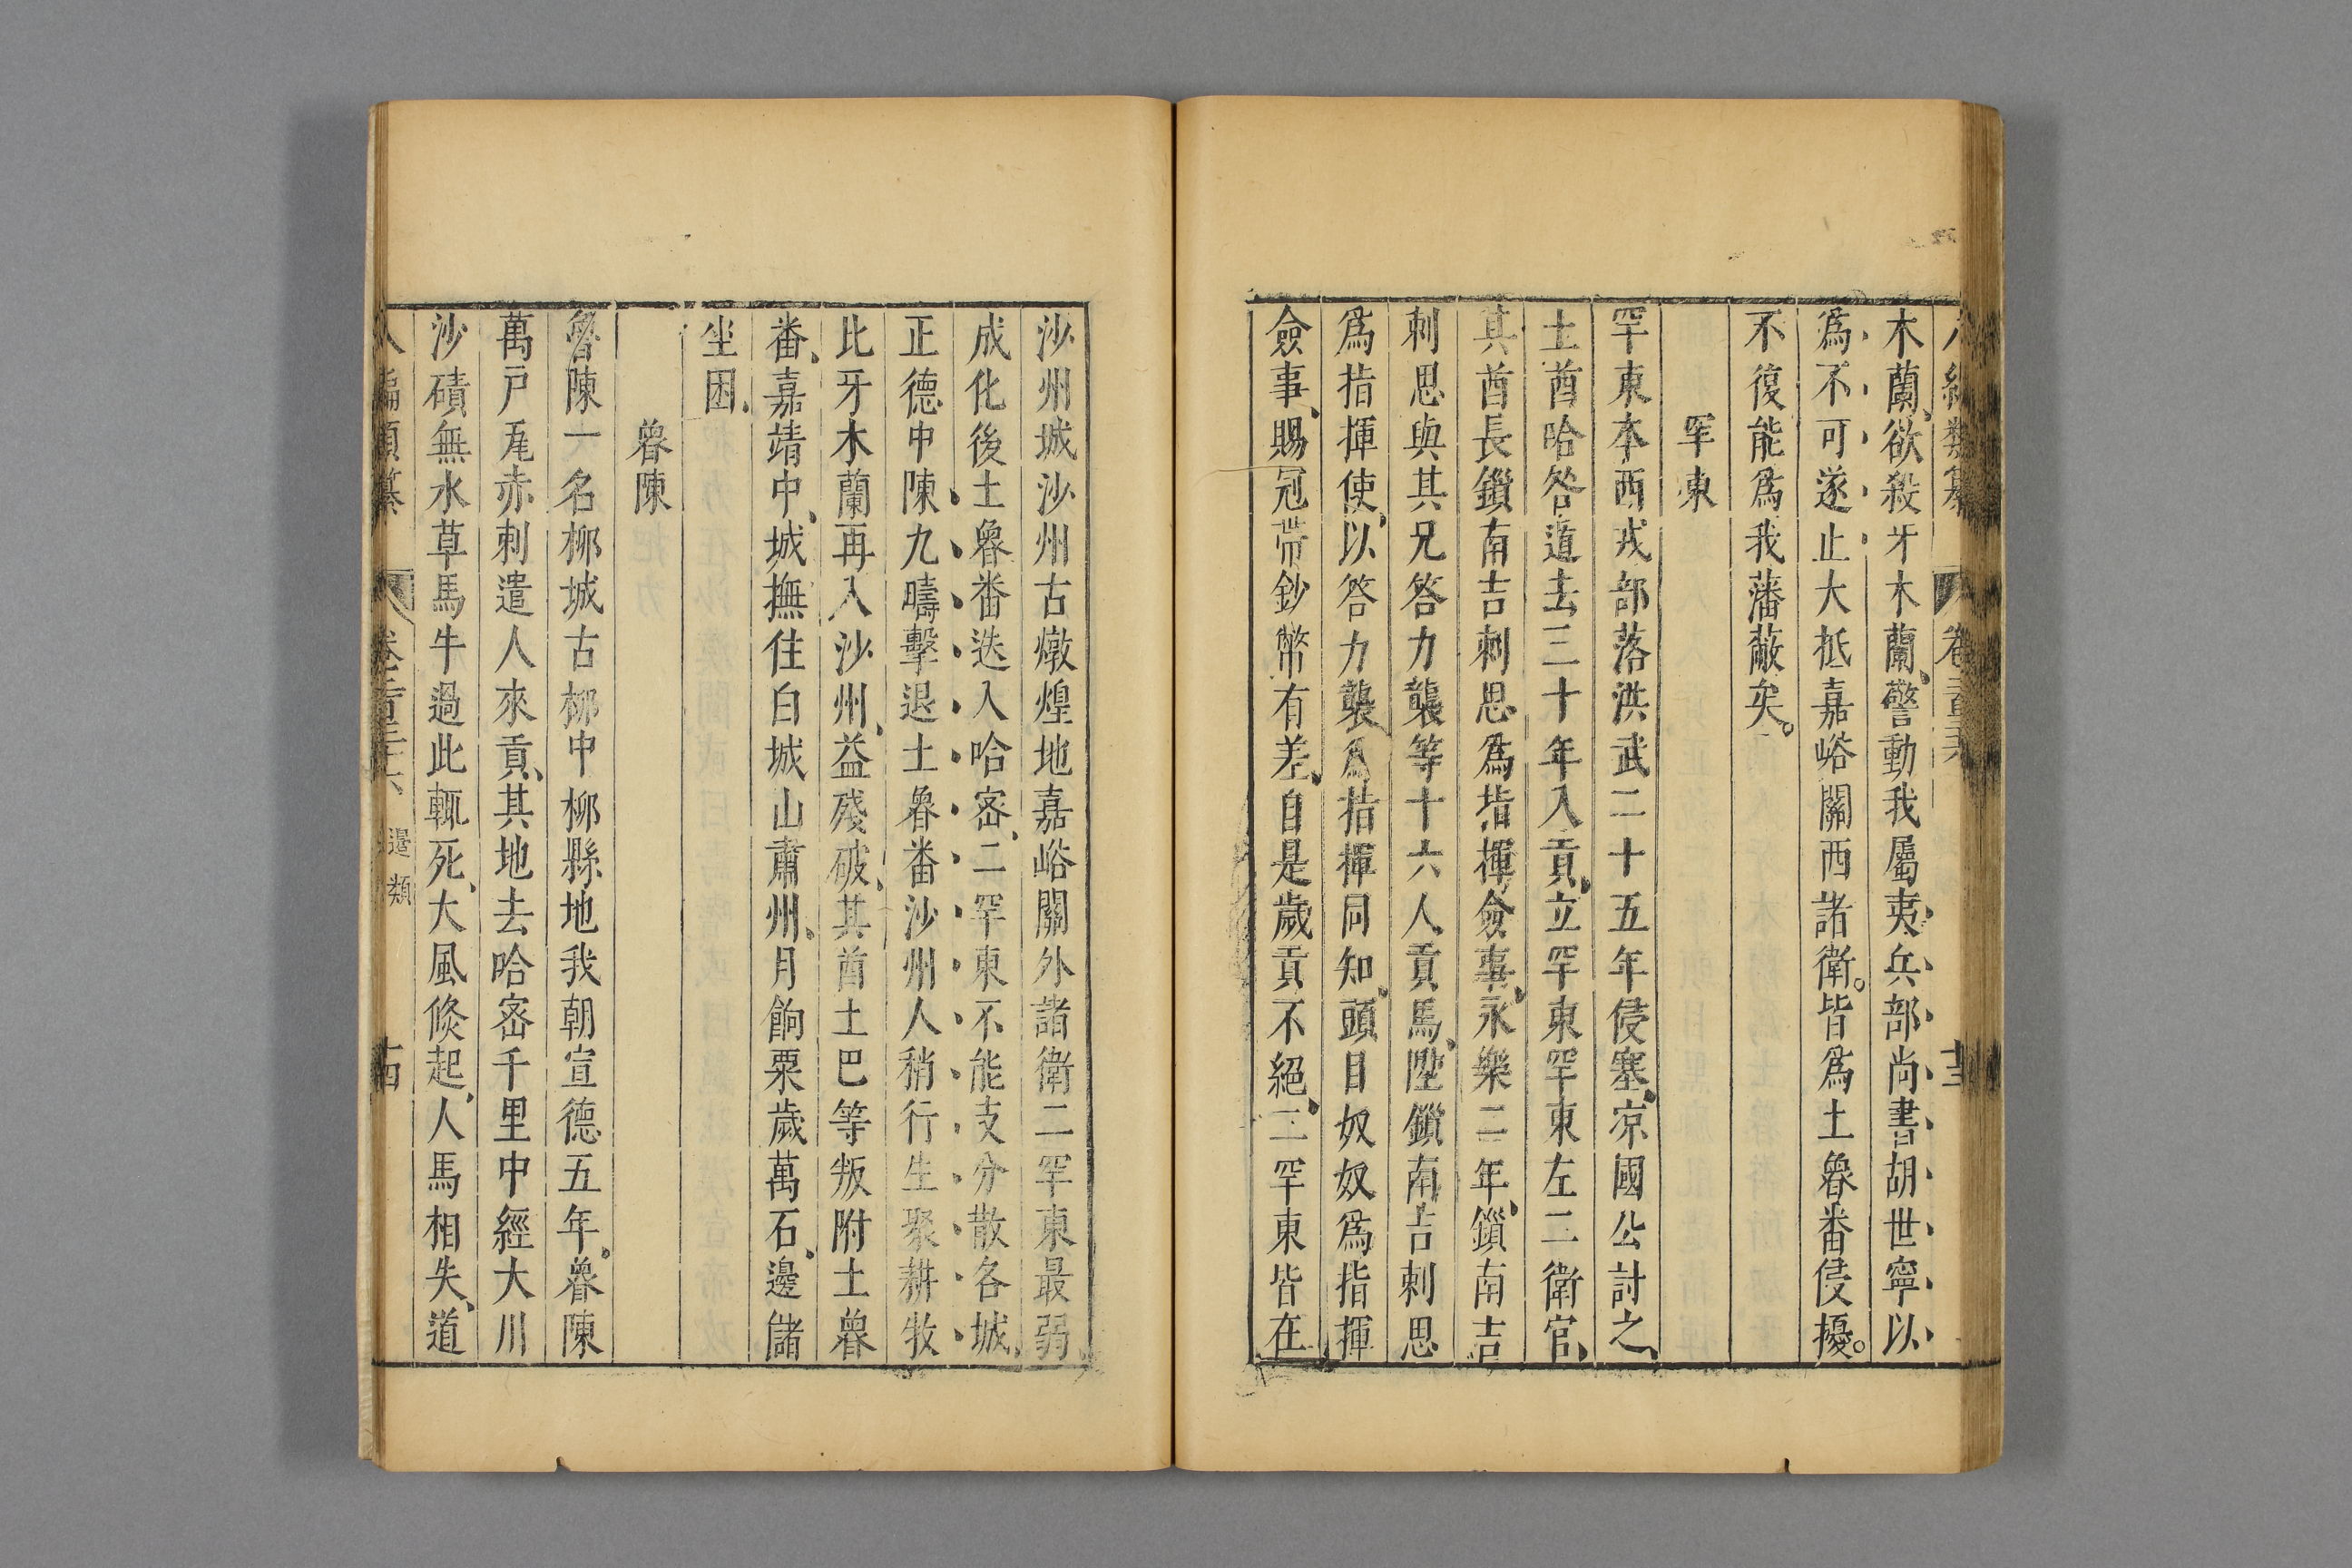 木蘭、欲殺牙木蘭、警動我屬夷、兵部尚書胡世寧以
爲不可遂止大抵嘉峪關西諸衛。皆爲土魯番侵擾。
不復能爲我藩蔽矣。
罕東
罕東本西戎部落洪武二十五年侵塞、凉國公討之、
土酋哈昝遁去三十年入貢、立罕東罕東左二衛官、
其酋長鎻南吉剌思爲指揮僉事、永樂二年、鎻南吉
剌思與其兄答力襲等十六人貢馬、陞鎻南吉剌思
爲指揮使、以答力襲爲指揮同知、頭目奴奴爲指揮
僉事、賜冠帶鈔幣有差、自是歲貢不絕、二罕東皆在
沙州城沙州古燉煌地嘉峪關外諸衛二罕東最弱、
成化後土魯番迭入哈密、二罕東不能支分散各城、
正德中陳九疇擊退土魯番沙州人稍行生聚耕牧
比牙木蘭再入沙州、益殘破、其酋土巴等叛附土魯
番、嘉靖中、城撫住白城山肅州、月餉粟歲萬石、邊儲
坐困、
魯陳
魯陳一名柳城古柳中柳縣地我朝宣德五年、魯陳
萬戶尾赤剌遣人來貢、其地去哈密千里中經大川
沙磧無水草馬牛過此輒死、大風倐起、人馬相失、道
卷 邊類 十四